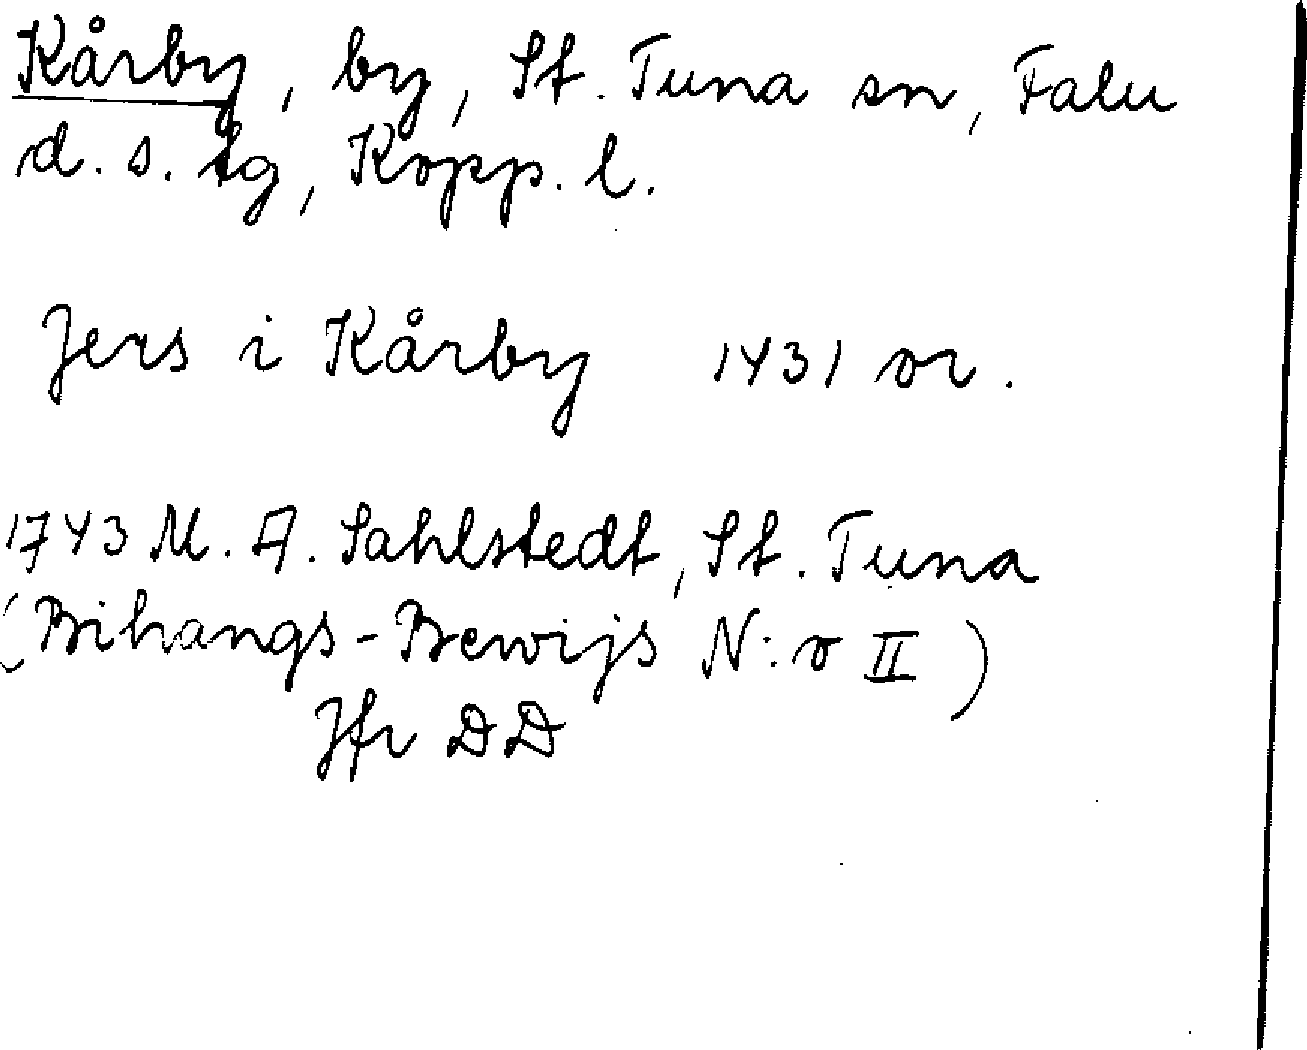 Kårby, by, St. Tuna sn, Falu
d. s. tg, Kopp. l.
Jers i Kårby 1431 or.
1743 M. A. Sahlstedt, St. Tuna
(Bihangs-Bewijs N:o II)
Jfr DD